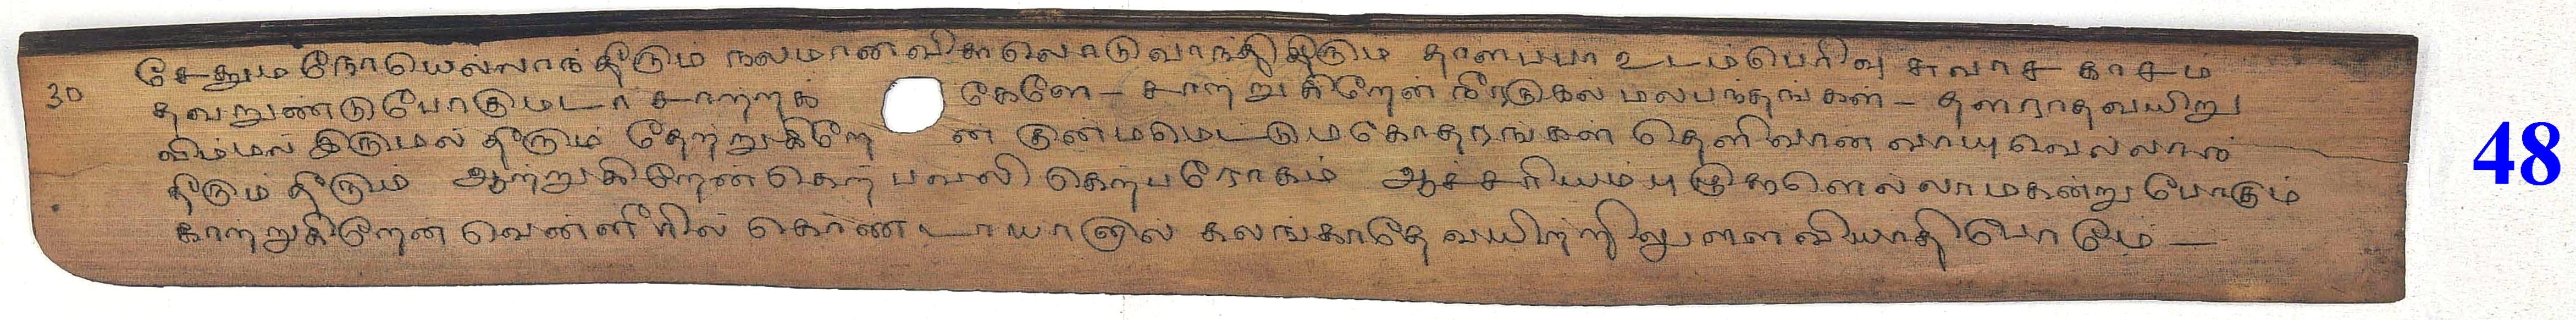 சேதமும நோயெல்லாந் தீரும் நலமான விககலொடு வாந்தி தீரும் தாளப்பா உடம்பெரிவு சுவாச காசம்
30 தவறுண்டு போகுமடா சாற்றக் கேளே - சாற்றுகிறேன் நீரடுகல் மலபந்தங்கள் - தளராத வயிறு
விம்மல் இருமல் தீரும் தேற்றுகிறேன் குன்மமெட்டு மகோதரங்கள் தெளிவான வாயுவெல்லாம்
தீரும் தீரும் ஆற்றுகிறேன் கெற்பவலி கெற்பரோகம் ஆச்சரியம் புழுககளெல்லாமகன்று போகும்
காற்றுகிறேன் வெண்ணீரில் கொண்டாயானால் கலங்காதே வயிற்றிலுளள வியாதி போமே -
48